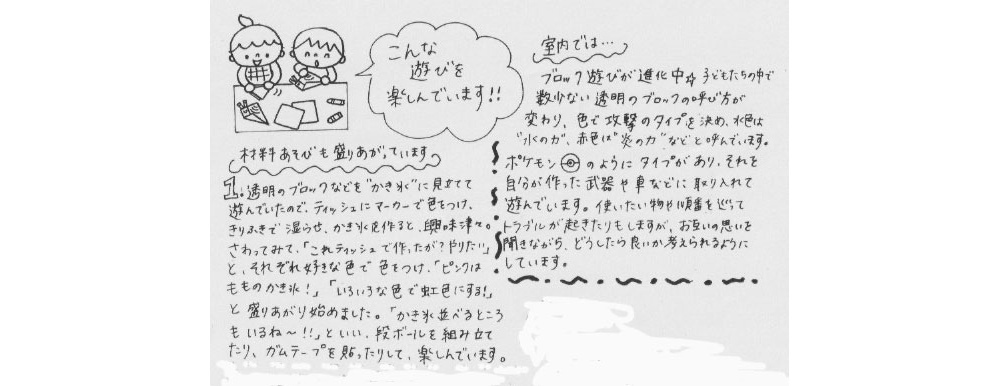 こんな
遊びを
楽しんでいます!!
材料あそびも盛りあがっています
1.透明のブロックなどを"かき氷"に見立てて
遊んでいたので、ティッシュにマーカーで色をつけ、
きりふきで湿らせ、かき氷を作ると、興味津々。
さわってみて、「これティッシュで作ったが?やりたい」
と、それぞれ好きな色で色をつけ、「ピンクは
もものかき氷!」「いろいろな色で虹色にする!」
と盛りあがり始めました。「かき氷並べるところ
もいるね〜!!」といい、段ボールを組み立て
たり、ガムテープを貼ったりして、楽しんでいます。
室内では…
ブロック遊びが進化中☆子どもたちの中で
数少ない透明のブロックの呼び方が
変わり、色で攻撃のタイプを決め、水色は
"水の力"、赤色は"炎の力"などと呼んでいます。
ポケモンのようにタイプがあり、それを
自分が作った武器や車などに取り入れて
遊んでいます。使いたい物や順番を巡って
トラブルが起きたりもしますが、お互いの思いを
聞きながら、どうしたら良いか考えられるように
しています。